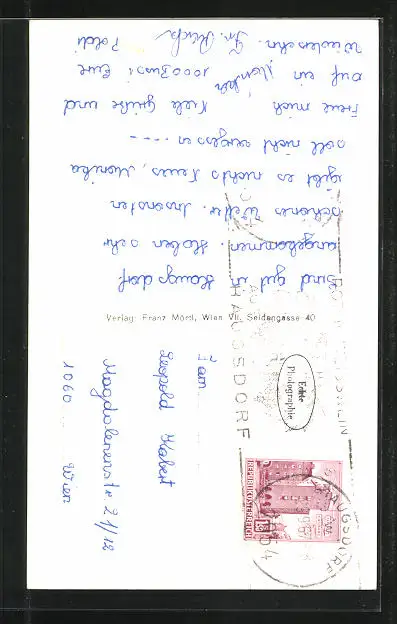 Sind gut in Haugsdorf
angekommen. Haben sehr
schönes Wetter. Ansonsten
gibt es nichts Neues, Monika
soll nicht vergessen ----
Freue mich
Viele Grüße und
auf ein
1000 Bussi Eure
Wiedersehn. Fr.
Poldi
Verlag: Franz Mörtl, Wien VII, Seidengasse 40
Echte
Photographie
HAUGSDORF
REPUBLIK ÖSTERREICH
HAUGSDORF
Fam.
Leopold
Magdalenenstr 21/12
1060 Wien